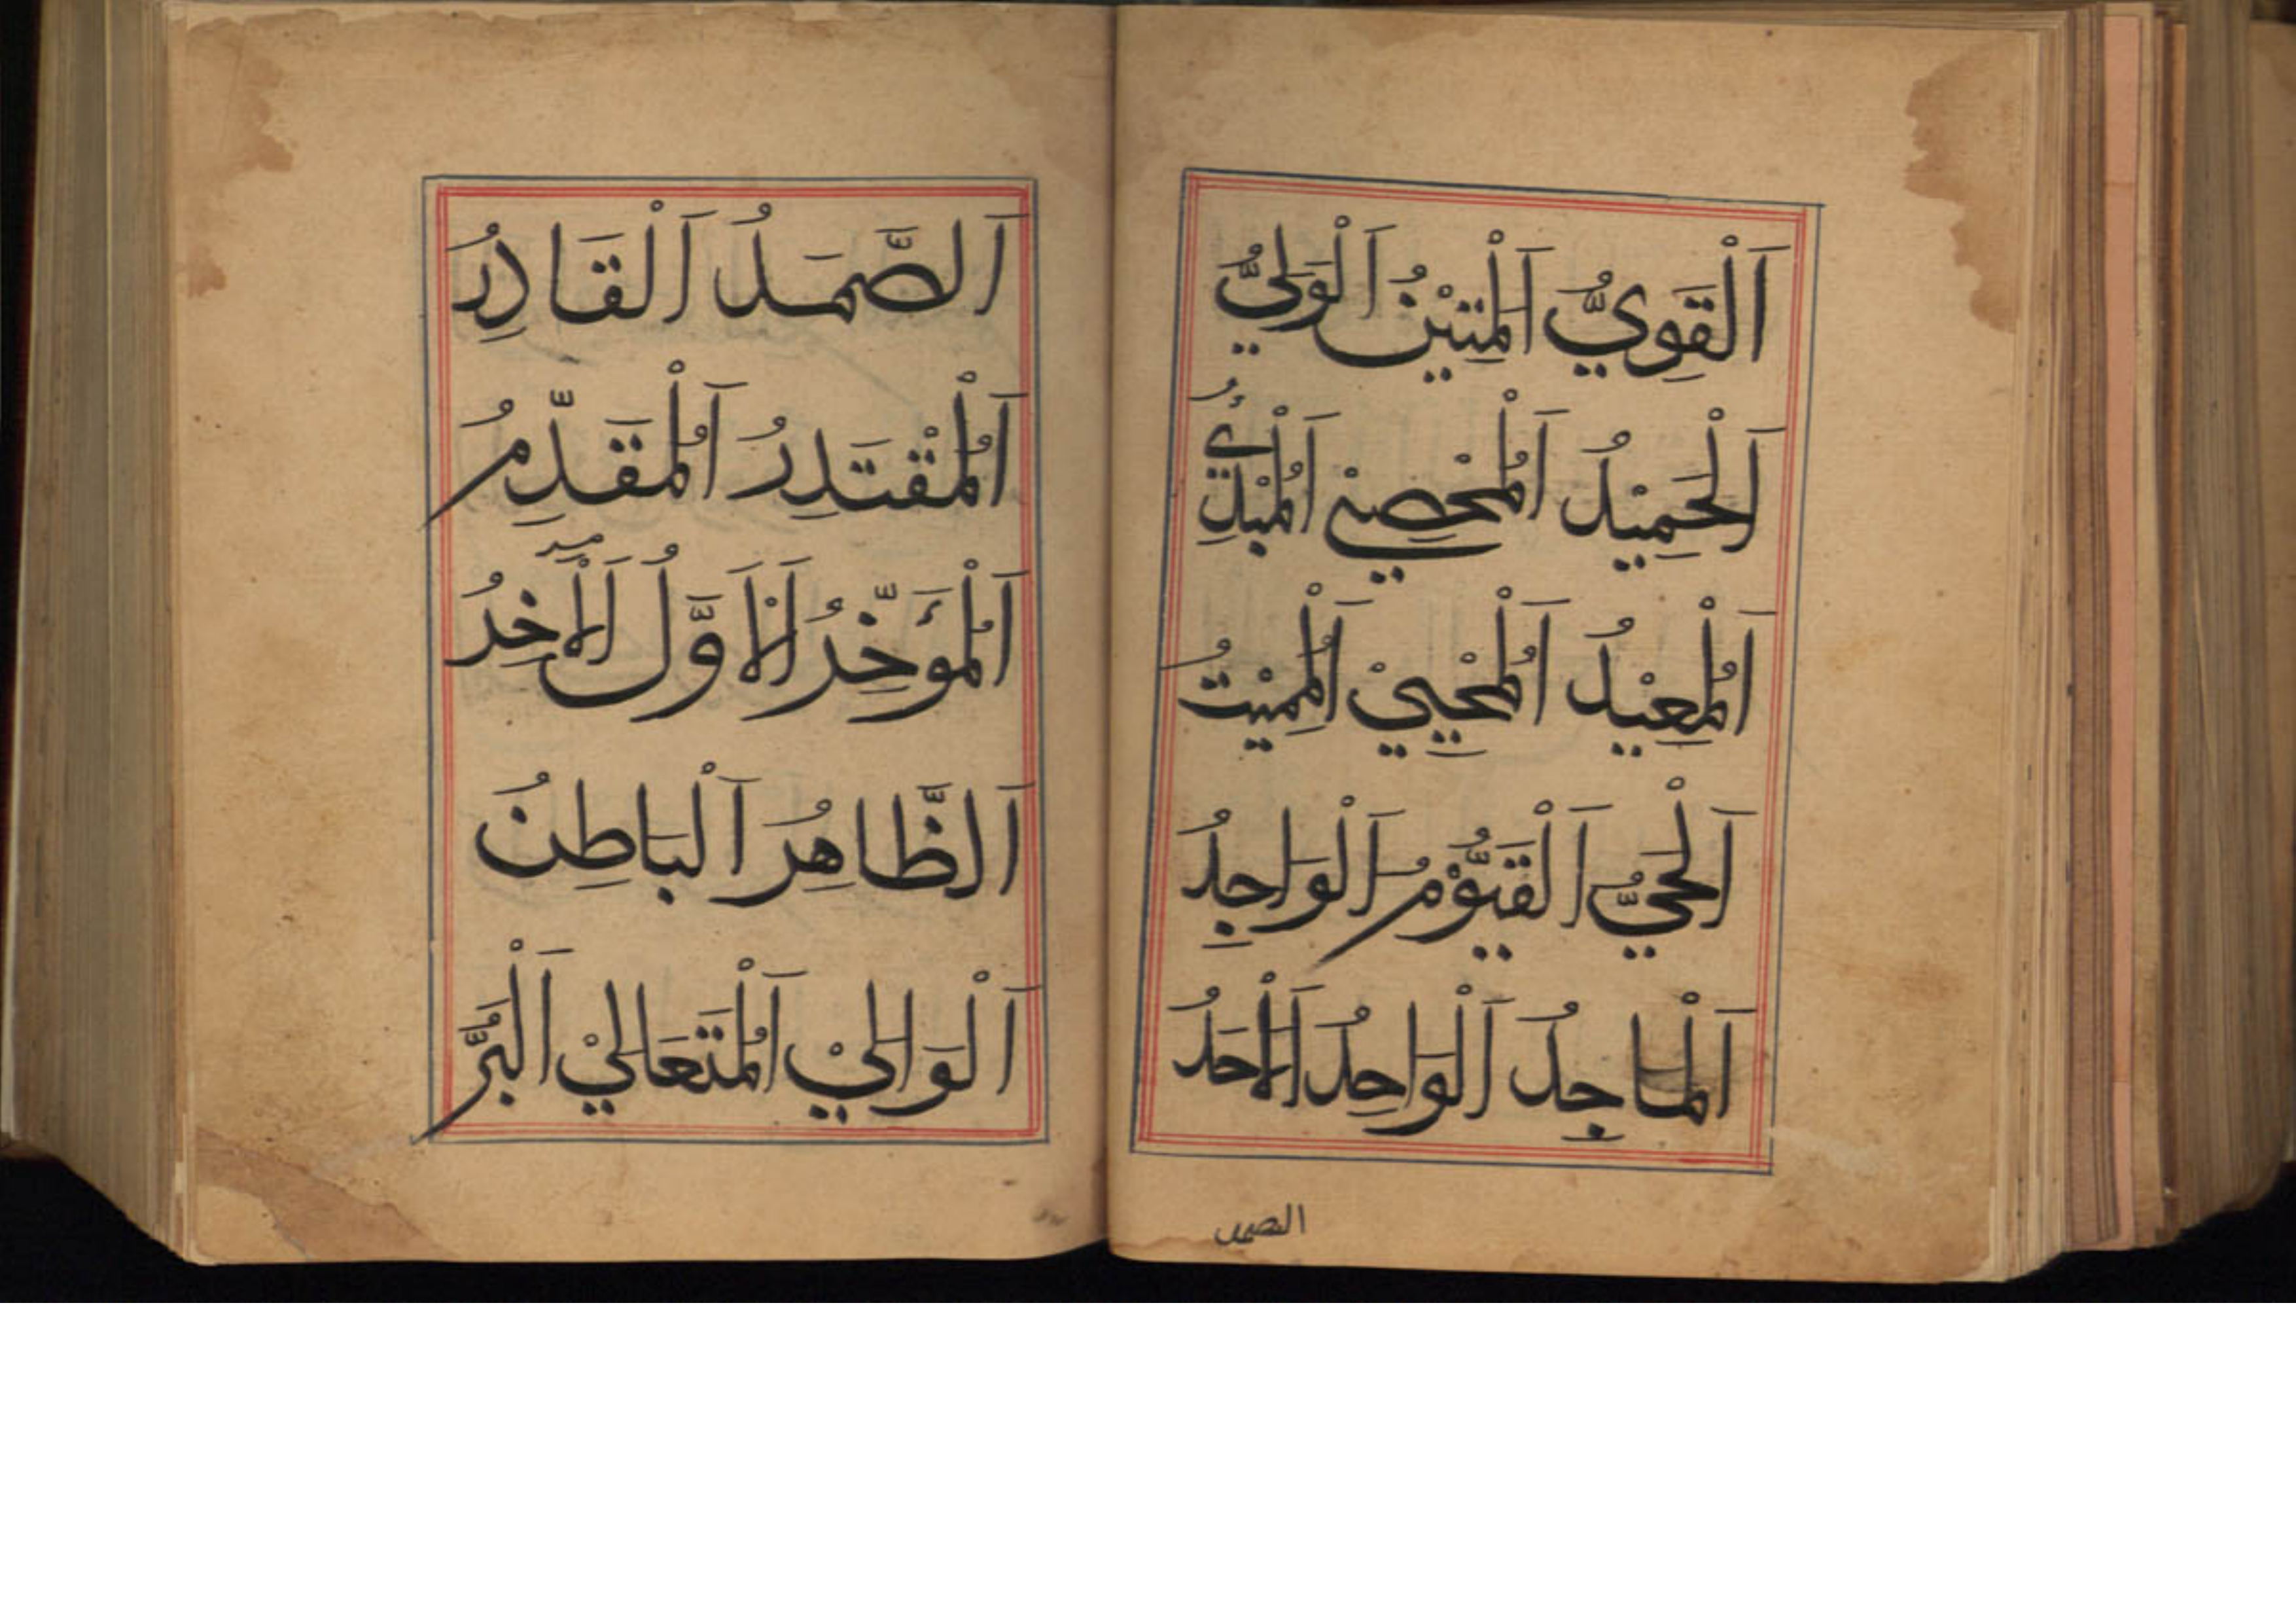 اَلْقَوِيُّ اَلْمَتِيْنُ اَلْوَلِيُّ
اَلْحَمِيْدُ اَلْمُحْصِيْ اَلْمُبْدِئُ
اَلْمُعِيْدُ اَلْمُحْيِيْ اَلْمُمِيْتُ
اَلْحَيُّ اَلْقَيُّوْمُ اَلْوَاجِدُ
اَلْمَاجِدُ اَلْوَاحِدُ اَلْاَحَدُ
الصمد
اَلصَّمَدُ اَلْقَادِرُ
اَلْمُقْتَدِرُ اَلْمُقَدِّمُ
اَلْمُؤَخِّرُ اَلْاَوَّلُ اَلْاٰخِرُ
اَلظَّاهِرُ اَلْبَاطِنُ
اَلْوَالِيْ اَلْمُتَعَالِيْ اَلْبَرُّ